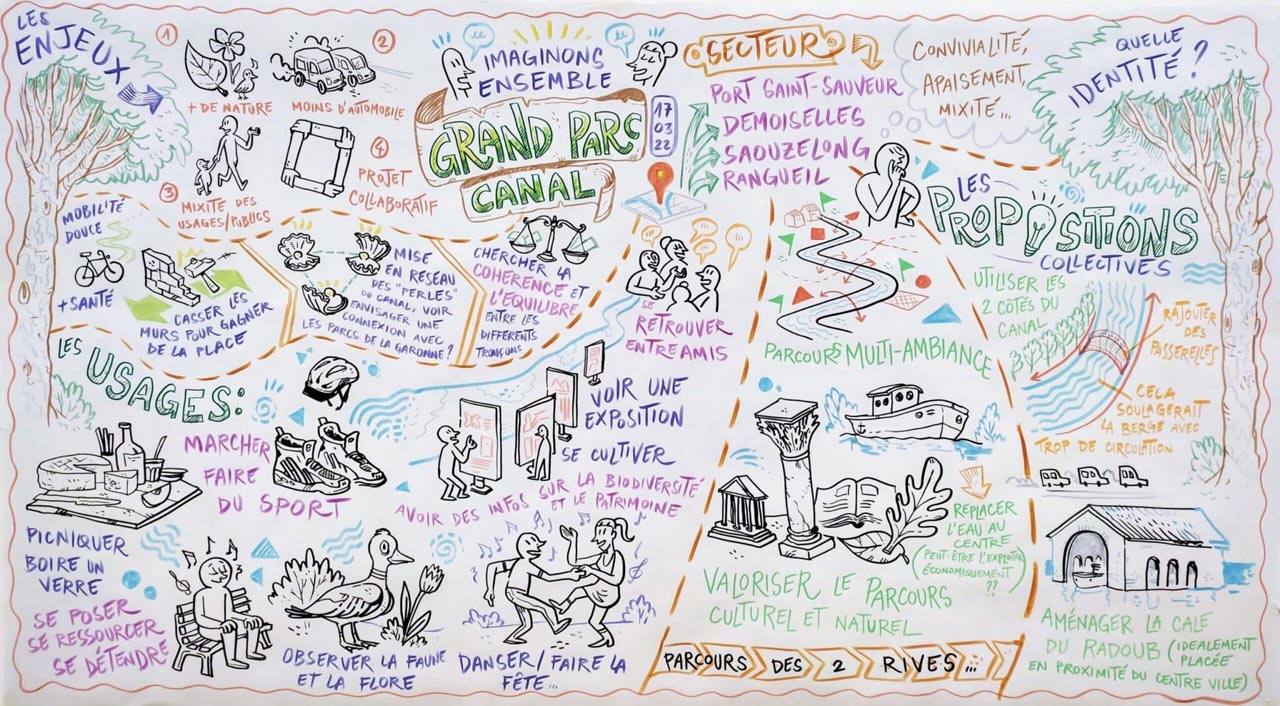 LES
ENJEUX
1
+ DE NATURE
2
MOINS D'AUTOMOBILE
3
MIXITÉ DES
USAGES/PUBLICS
4
PROJET
COLLABORATIF
MOBILITÉ
DOUCE
+ SANTÉ
CASSER LES
MURS POUR GAGNER
DE LA PLACE
MISE
EN RESEAU
DES "PERLES"
DU CANAL, VOIR
ENVISAGER UNE
CONNEXION AVEC
LES PARCS DE LA GARONNE ?
CHERCHER LA
COHERENCE ET
L'EQUILIBRE
ENTRE LES
DIFFERENTS
TRONÇONS
IMAGINONS
ENSEMBLE
GRAND PARC
CANAL
17
03
22
SECTEUR
PORT SAINT-SAUVEUR
DEMOISELLES
SAOUZELONG
RANGUEIL
CONVIVIALITÉ,
APAISEMENT,
MIXITÉ...
QUELLE
IDENTITÉ ?
LES USAGES:
PICNIQUER
BOIRE UN
VERRE
MARCHER
FAIRE
DU SPORT
SE
RETROUVER
ENTRE AMIS
VOIR UNE
EXPOSITION
SE CULTIVER
AVOIR DES INFOS SUR LA BIODIVERSITÉ
ET LE PATRIMOINE
SE POSER
SE RESSOURCER
SE DÉTENDRE
OBSERVER LA FAUNE
ET LA FLORE
DANSER / FAIRE LA
FÊTE...
LES
PROPOSITIONS
COLLECTIVES
PARCOURS MULTI-AMBIANCE
VALORISER LE PARCOURS
CULTUREL ET NATUREL
REPLACER
L'EAU AU
CENTRE
(PEUT-ÊTRE L'EXPLOITER
ÉCONOMIQUEMENT
??
PARCOURS DES 2 RIVES...
UTILISER LES
2 CÔTÉS DU
CANAL
RAJOUTER
DES
PASSERELLES
CELA
SOULAGERAIT
LA BERGE AVEC
TROP DE CIRCULATION
AMÉNAGER LA CALE
DU RADOUB (IDEALEMENT
PLACÉE
EN PROXIMITÉ DU CENTRE VILLE)